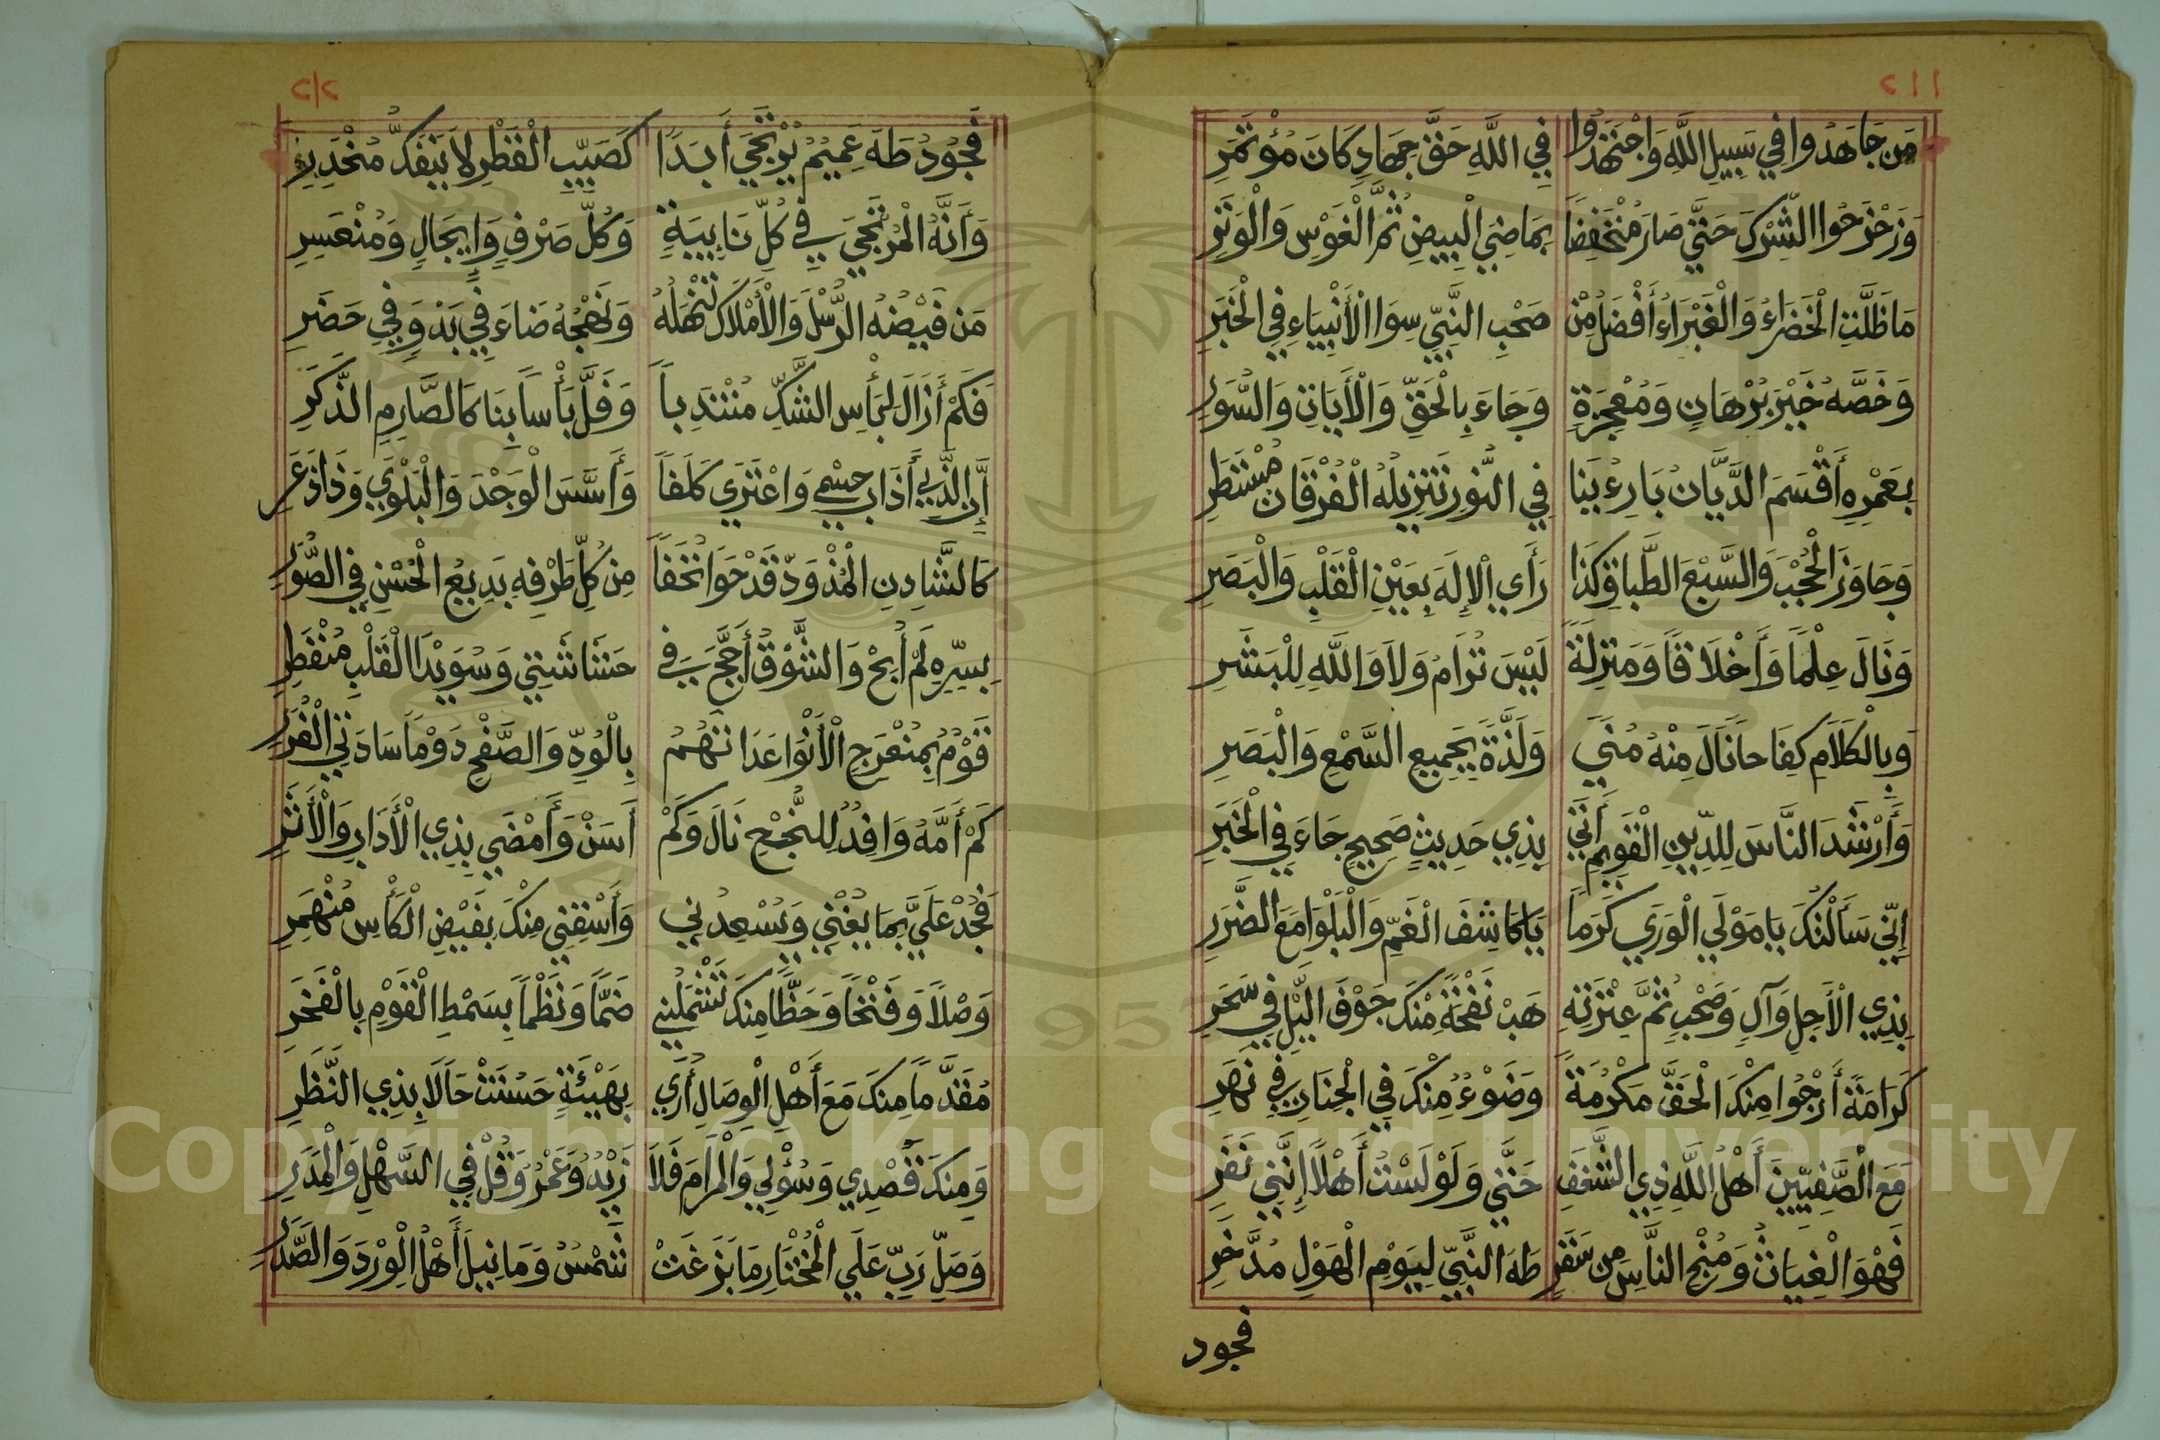 ٢١١
مَن جَاهَدُوا فِي سَبِيلِ اللَّهِ وَاجْتَهَدُوا فِي اللَّهِ حَقَّ جِهَادٍ كَانَ مُؤْتَمَرِ
وَزَحْزَحُوا الشِّرْكَ حَتَّى صَارَ مُنْخَفِضَاً بِمَاضِي الْبِيضِ ثُمَّ الْغَوْسِ وَالْوَتَرِ
مَا ظَلَّتِ الْخَضَرَاءُ وَالْغَبْرَاءُ أَفْضَلَ مِنْ صَحْبِ النَّبِيِّ سِوَا الْأَنْبِيَاءِ فِي الْخَبَرِ
وَخَصَّهُ خَيْرَ بُرْهَانٍ وَمُعْجِزَةٍ وَجَاءَ بِالْحَقِّ وَالْأَيَاتِ وَالسُّوَرِ
بِعَمْرِهِ أَقْسَمَ الدَّيَّانُ بَارِءُنَا فِي النُّورِ تَنْزِيلُهُ الْفُرْقَانَ مُسْتَطَرِ
وَجَاوَزَ الْحُجْبَ وَالسَّبْعَ الطَّبَاقِ كَذَا رَأَى الْإِلَهَ بِعَيْنِ الْقَلْبِ وَالْبَصَرِ
وَنَالَ عِلْمَاً وَأَخْلَاقَاً وَمَنْزِلَةً لَيْسَ تُرَامُ وَلَا وَاللَّهِ لِلْبَشَرِ
وَبِالْكَلَامِ كِفَاحَاً نَالَ مِنْهُ مُنَى وَلَذَّةً بِجَمِيعِ السَّمْعِ وَالْبَصَرِ
وَأَرْشَدَ النَّاسَ لِلدِّينِ الْقَوِيمِ أَتَى بِذِي حَدِيثٍ صَحِيحٍ جَاءَ فِي الْخَبَرِ
إِنِّي سَأَلْتُكَ يَا مَوْلَى الْوَرَى كَرَمَاً يَا كَاشِفَ الْغَمِّ وَالْبَلْوَا مَعَ الضَّرَرِ
بِذِي الْأَجِلِ وَآلٍ وَصَحْبٍ ثُمَّ عِتْرَتِهِ هَبْ نَفْحَةً مِنْكَ جَوْفَ الَّيْلِ فِي سَحَرِ
كَرَامَةً أَرْجُوا مِنْكَ الْحَقَّ مَكْرُمَةً وَضَوْءُ مِنْكَ فِي الْجِنَانِ فِي نَهَرِ
مَعَ الصَّفِيِّينَ أَهْلُ اللَّهِ ذِي الشَّغَفِ حَتَّى وَلَوْ لَسْتُ أَهْلَاً إِنَّنِي نَفَرِ
فَهْوَ الْغِيَاثُ وَمُنْجِ النَّاسَ مِن سَقَرٍ طَهَ النَّبِيِّ لِيَوْمِ الْهَوْلِ مُدَّخَرِ
فجود
٢١٢
فَجُودُ طَهَ عَمِيمُ يُرْتَجَى أَبَدَاً كَصَيِّبِ الْقَطْرِ لَا يَنْفَكُّ مُنْحَدِرِ
وَأَنَّهُ الْمُرْتَجَى فِي كُلِّ نَايِبَةٍ وَكُلِّ صَرْفٍ وَإِيجَالٍ وَمُنْعَسِرِ
مَن فَيْضُهُ الرُّسْلَ وَالْأَمْلَاكَ تَنْهَلُهُ وَنَهْجُهُ ضَاءَ فِي بَدْوٍ وَفِي حَضَرِ
فَكَمْ أَزَالَ لِبَأْسِ الشَّكِّ مُنْتَدِبَاً وَفَلَّ بَأْسَاً بِنَا كَالصَّارِمِ الذَّكَرِ
إِنَّ الَّذِي أَذَابَ جِسْمِي وَاعْتَرَى كَلَفَاً وَأَسَّسَ الْوَجْدَ وَالْبَلْوَى وَذَا ذَعَرِ
كَالشَّادِنِ الْمُذْوَدِّ قَدْ حَوَا تُحَفَاً مِن كُلِّ طَرْفِهِ بَدِيعُ الْحُسْنِ فِي الصُّوَرِ
بِسِرِّهِ لَمْ أُبِحْ وَالشَّوْقُ أَجَّجَ فِي حَشَاشَتِي وَسُوَيْدَا الْقَلْبِ مُنْفَطِرِ
قَوْمُ بِمُنْعَرِجِ الْأَنْوَا عَدَاتَهُمُ بِالْوُدِّ وَالصَّفْحِ دَوْمَاً سَادَتِي الْغُرَرِ
كَمْ أَمَّهُ وَافِدُ لِلنُّجْحِ نَالَ وَكَمْ أَسَنْ وَأَمْضَى بِذِي الْأَدَابِ وَالْأَثَرِ
فَجُدْ عَلَيَّ بِمَا يُغْنِي وَيُسْعِدُنِي وَأَسْقِنِي مِنْكَ بِفَيْضِ الْكَأْسِ مُنْهَمِرِ
وَصْلَاً وَفَتْحَاً وَحَظَّاً مِنْكَ تَشْمَلُنِي ضَمَّاً وَنَظْمَاً بِسَمْطِ الْقَوْمِ بِالْفَخَرِ
مُقَدَّمَاً مِنْكَ مَعَ أَهْلِ الْوِصَالِ أُرَى بِهَيْئَةٍ حَسُنَتْ حَالَا بِذِي النَّظَرِ
وَمِنْكَ قَصْدِي وَسُؤْلِي وَالْمَرَامَ فَلَا زَيْدُ وَعَمْرُ وَقُلْ فِي السَّهْلِ وَالْمَدَرِ
وَصَلِّ رَبِّ عَلَى الْمُخْتَارِ مَا بَزَغَتْ شَمْسُ وَمَا نِيلَ أَهْلُ الْوِرْدِ وَالصَّدَرِ
Copyright © King Saud University
957